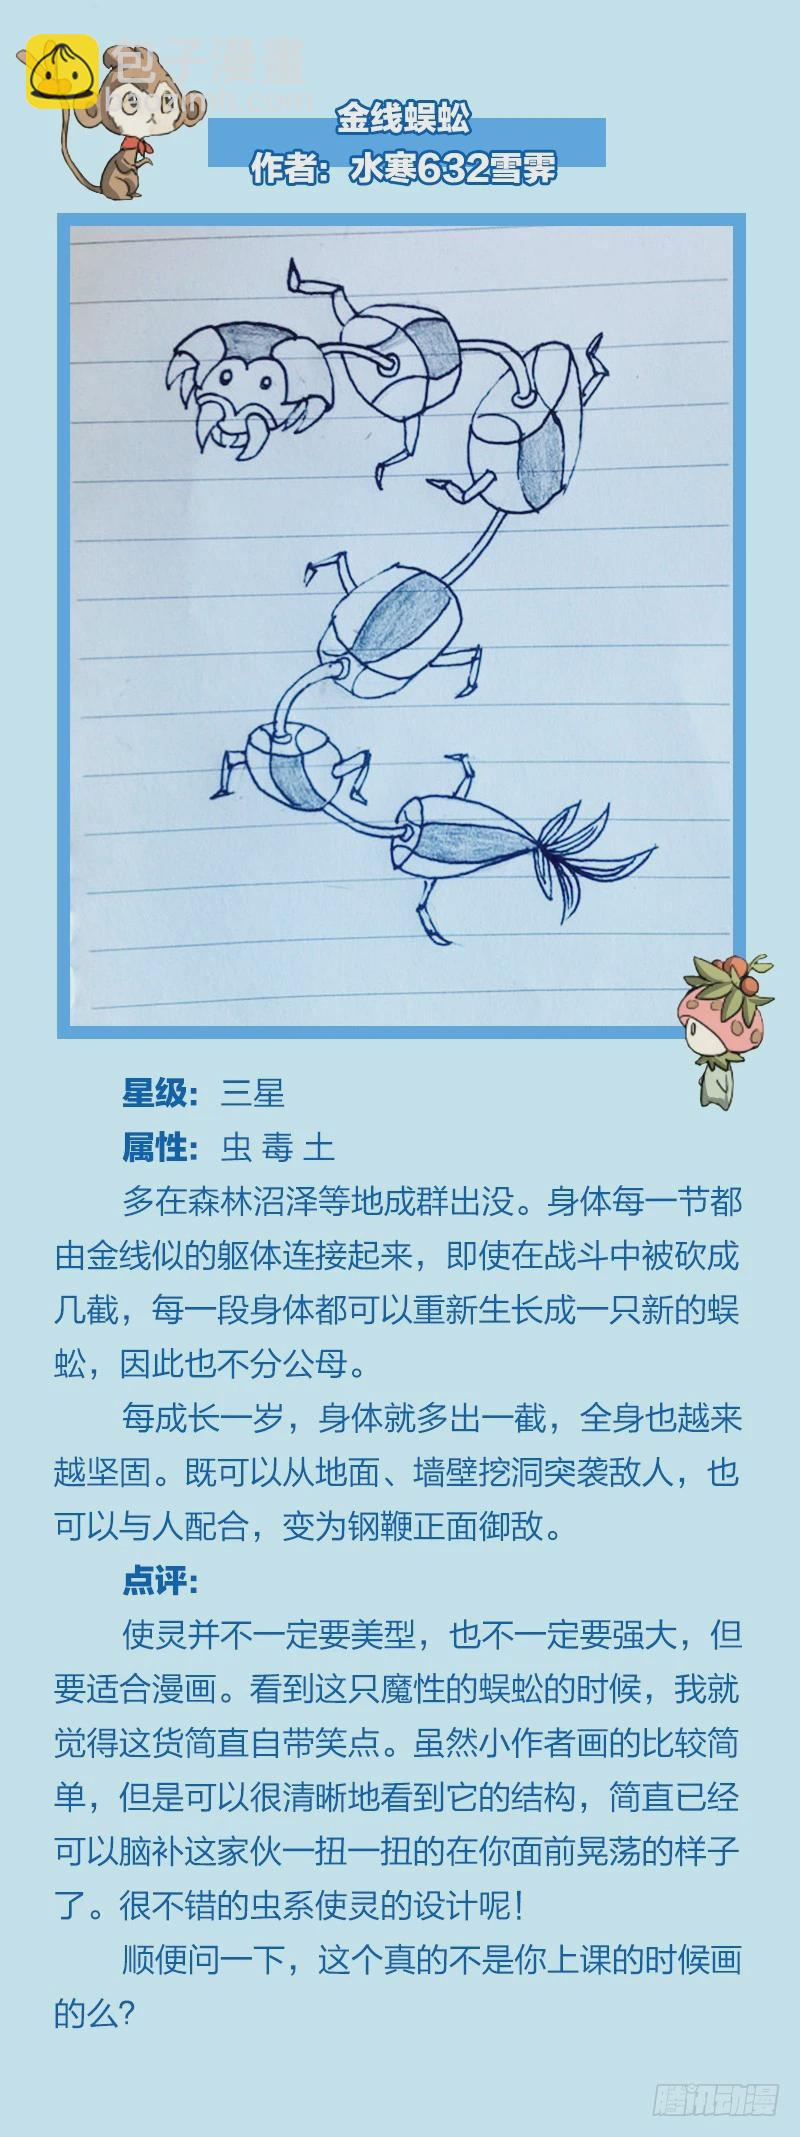 包子漫畫
baozimh.com
金线蜈蚣
作者：水寒632雪霁
星级：三星
属性：虫 毒 土
多在森林沼泽等地成群出没。身体每一节都
由金线似的躯体连接起来，即使在战斗中被砍成
几截，每一段身体都可以重新生长成一只新的蜈
蚣，因此也不分公母。
每成长一岁，身体就多出一截，全身也越来
越坚固。既可以从地面、墙壁挖洞突袭敌人，也
可以与人配合，变为钢鞭正面御敌。
点评：
使灵并不一定要美型，也不一定要强大，但
要适合漫画。看到这只魔性的蜈蚣的时候，我就
觉得这货简直自带笑点。虽然小作者画的比较简
单，但是可以很清晰地看到它的结构，简直已经
可以脑补这家伙一扭一扭的在你面前晃荡的样子
了。很不错的虫系使灵的设计呢！
顺便问一下，这个真的不是你上课的时候画
的么？
腾讯动漫